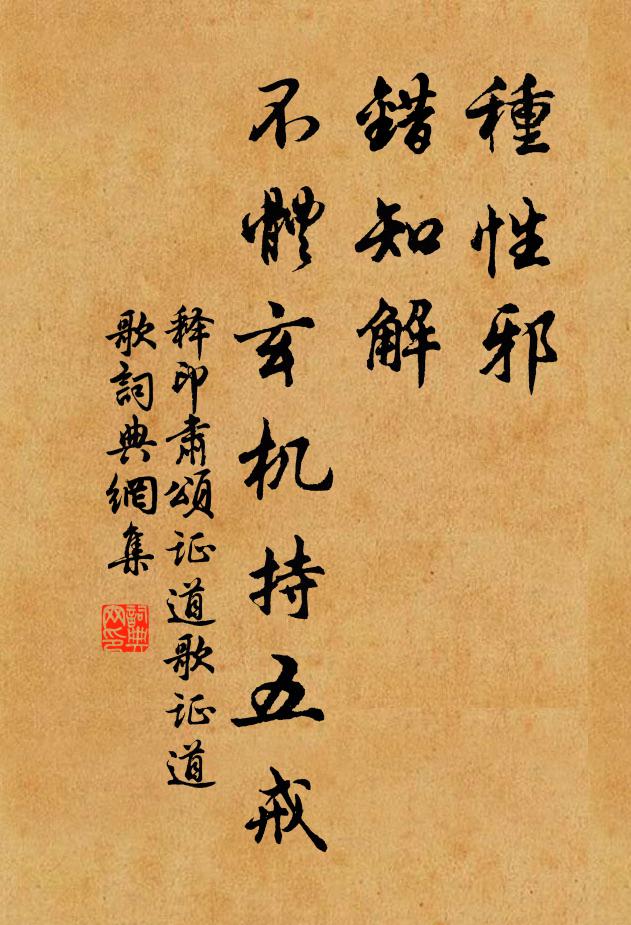 種性邪
錯知解
不體玄机持五戒
释印肅頌证道歌证道
歌詞典網集
詞典网印